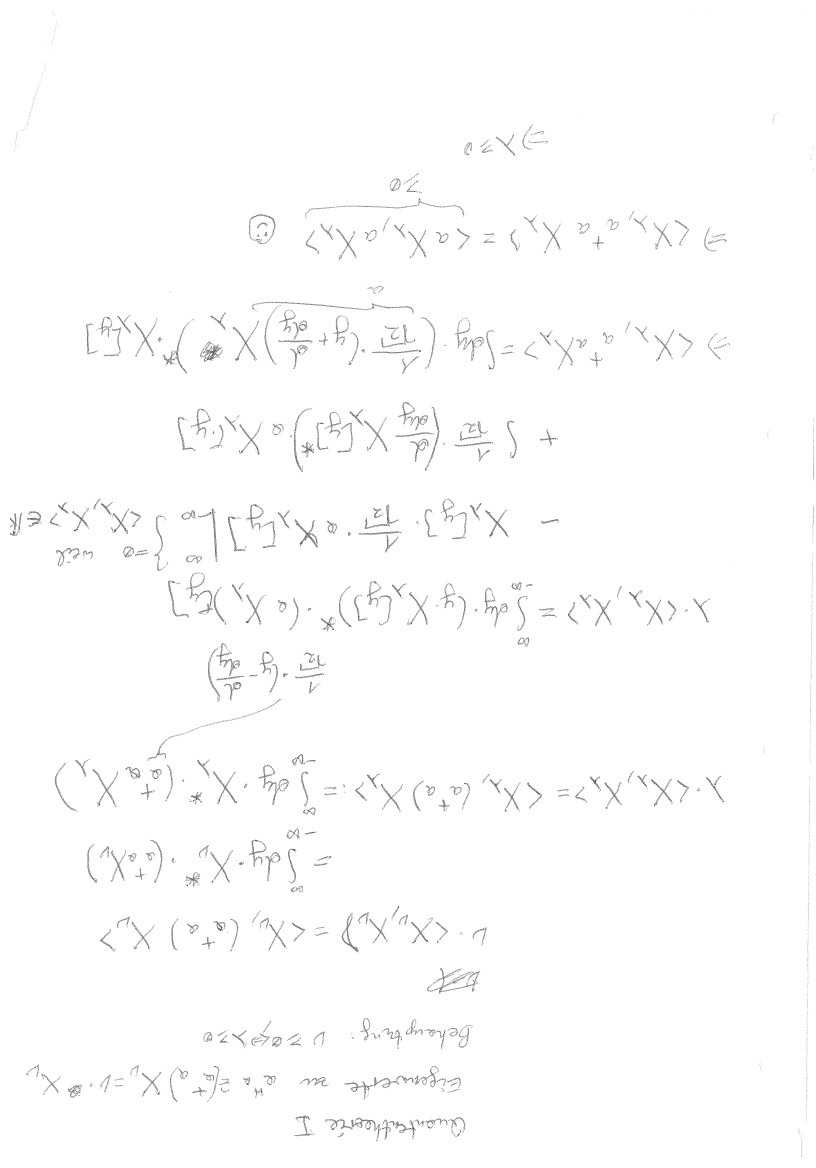 Quantentheorie I
Eigenwerte zu a⁺a (a⁺a) X_ν = ν · X_ν
Behauptung: ν ≥ 0 ⇔ λ ≥ 0
ν · <X_ν, X_ν> = <X_ν, (a⁺a) X_ν>
= ∫_{-∞}^{∞} dy · X_ν* · (a⁺a X_ν)
λ · <X_λ, X_λ> = <X_λ, (a⁺a) X_λ> := ∫_{-∞}^{∞} dy · X_λ* · (a⁺a X_λ)
1/√2 · (y - d/dy)
λ · <X_λ, X_λ> = ∫_{-∞}^{∞} dy · (y · X_λ[y])* · (a X_λ)[y]
- X_λ[y] · 1/√2 · a X_λ[y] |_{-∞}^{∞} } = 0 weil <X_λ, X_λ> ∈ ℝ
+ ∫ 1/√2 · (d/dy X_λ[y]*) · a X_λ[y]
⇒ <X_λ, a⁺a X_λ> = ∫ dy · (1/√2 · (y + d/dy) X_λ)* · X_λ[y]
a
⇒ <X_λ, a⁺a X_λ> = <a X_λ, a X_λ> ☺
≥ 0
⇒ λ ≥ 0